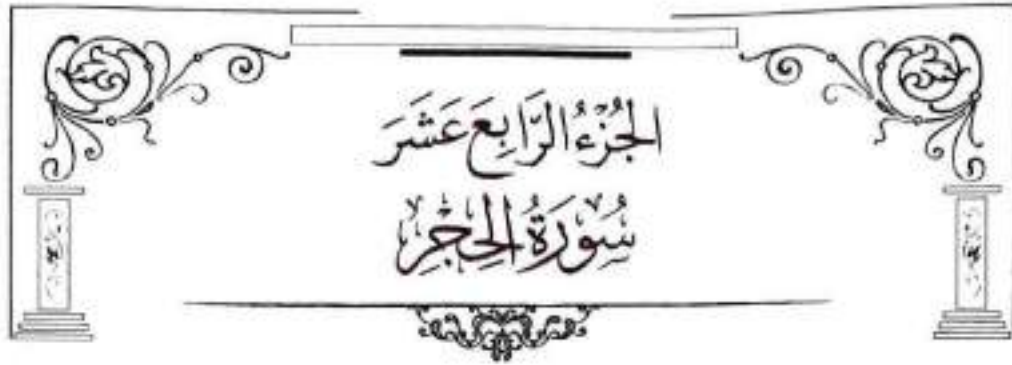 الجُزْءُ الرَّابِعَ عَشَرَ
سُوْرَةُ الحِجْرِ